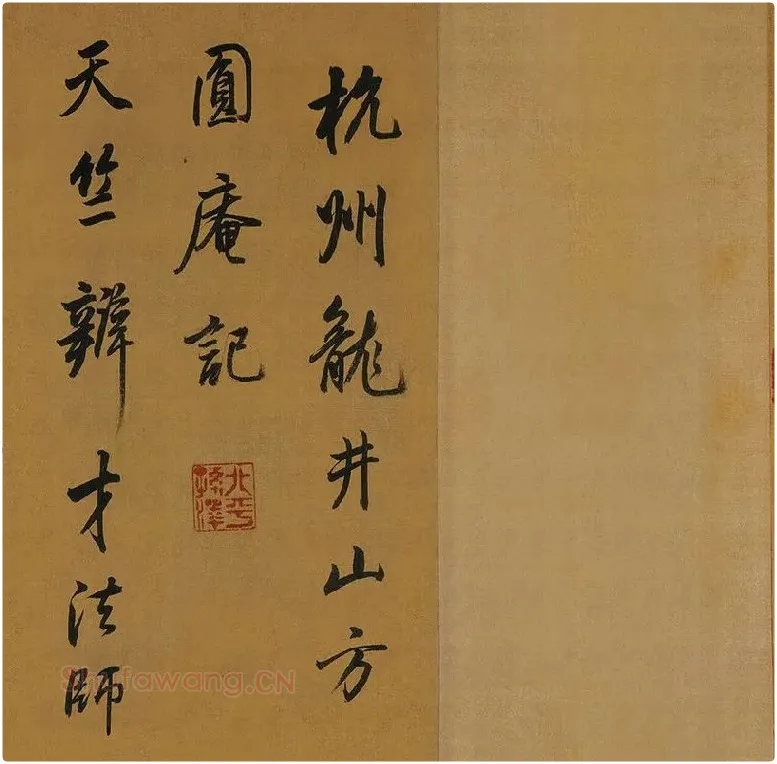 杭州龍井山方
圓庵記
天竺辯才法師
北平孫氏
Shufawang.CN